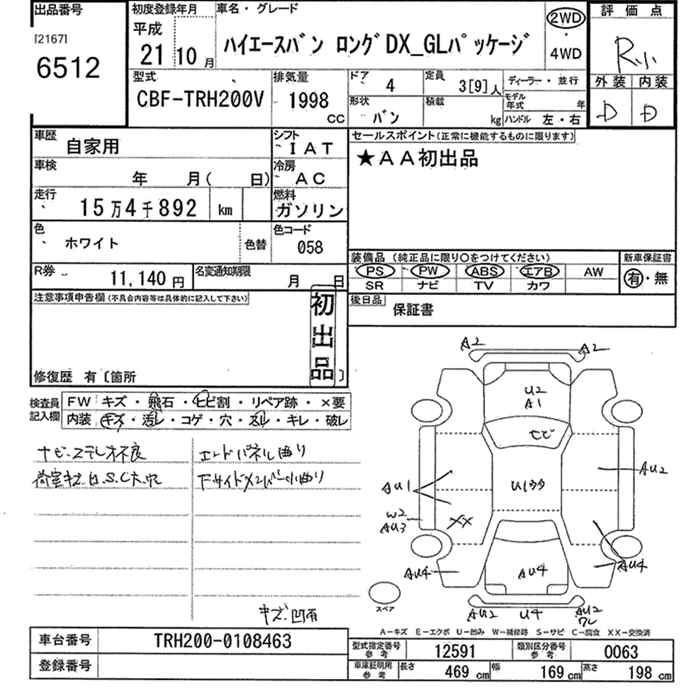 出品番号 初度登録年月 車名・グレード 評価点
[2167] 平成 ハイエースバン ロングDX_GLパッケージ 2WD R小
6512 21年10月 4WD
型式 排気量 ドア 4 定員 3[9]人 ディーラー・並行 外装 内装
CBF-TRH200V 1998 CC 形状 バン 積載 kg モデル年式 年 D D
ハンドル 左・右
車歴 自家用 シフト IAT セールスポイント(正常に機能するものに限ります)
車検 年 月( 日) 冷房 AC ★AA初出品
走行 15万4千892 km 燃料 ガソリン
色 ホワイト 色替 色コード 058
装備品 (純正品に限り○をつけてください) 新車保証書
R券 11,140円 名変通知期限 月 日 PS PW ABS エアB AW 有・無
SR ナビ TV カワ
注意事項申告欄(不具合内容等は具体的に記入して下さい) 初出品 後日品 保証書
修復歴 有〔箇所
検査員記入欄 FW キズ・飛石・ヒビ割・リペア跡・×要
内装 キズ・汚レ・コゲ・穴・スレ・キレ・破レ
ナビ・ステレオ不良 エンドパネル曲り
荷室キズ、凹、S.C大、穴 下サイドメンバー小曲り
キズ、凹有
A2 A2
U2
A1
ヒビ
AU1 U1 AU2
W2
AU3 XX
AU4 AU4 AU4
スペア AU2 U4 AU2
ワレ
A-キズ E-エクボ U-凹み W-補修跡 S-サビ C-腐食 XX-交換済
車台番号 TRH200-0108463 型式指定番号参考 12591 類別区分番号参考 0063
登録番号 車庫証明用参考 長さ 469cm 幅 169cm 高さ 198cm